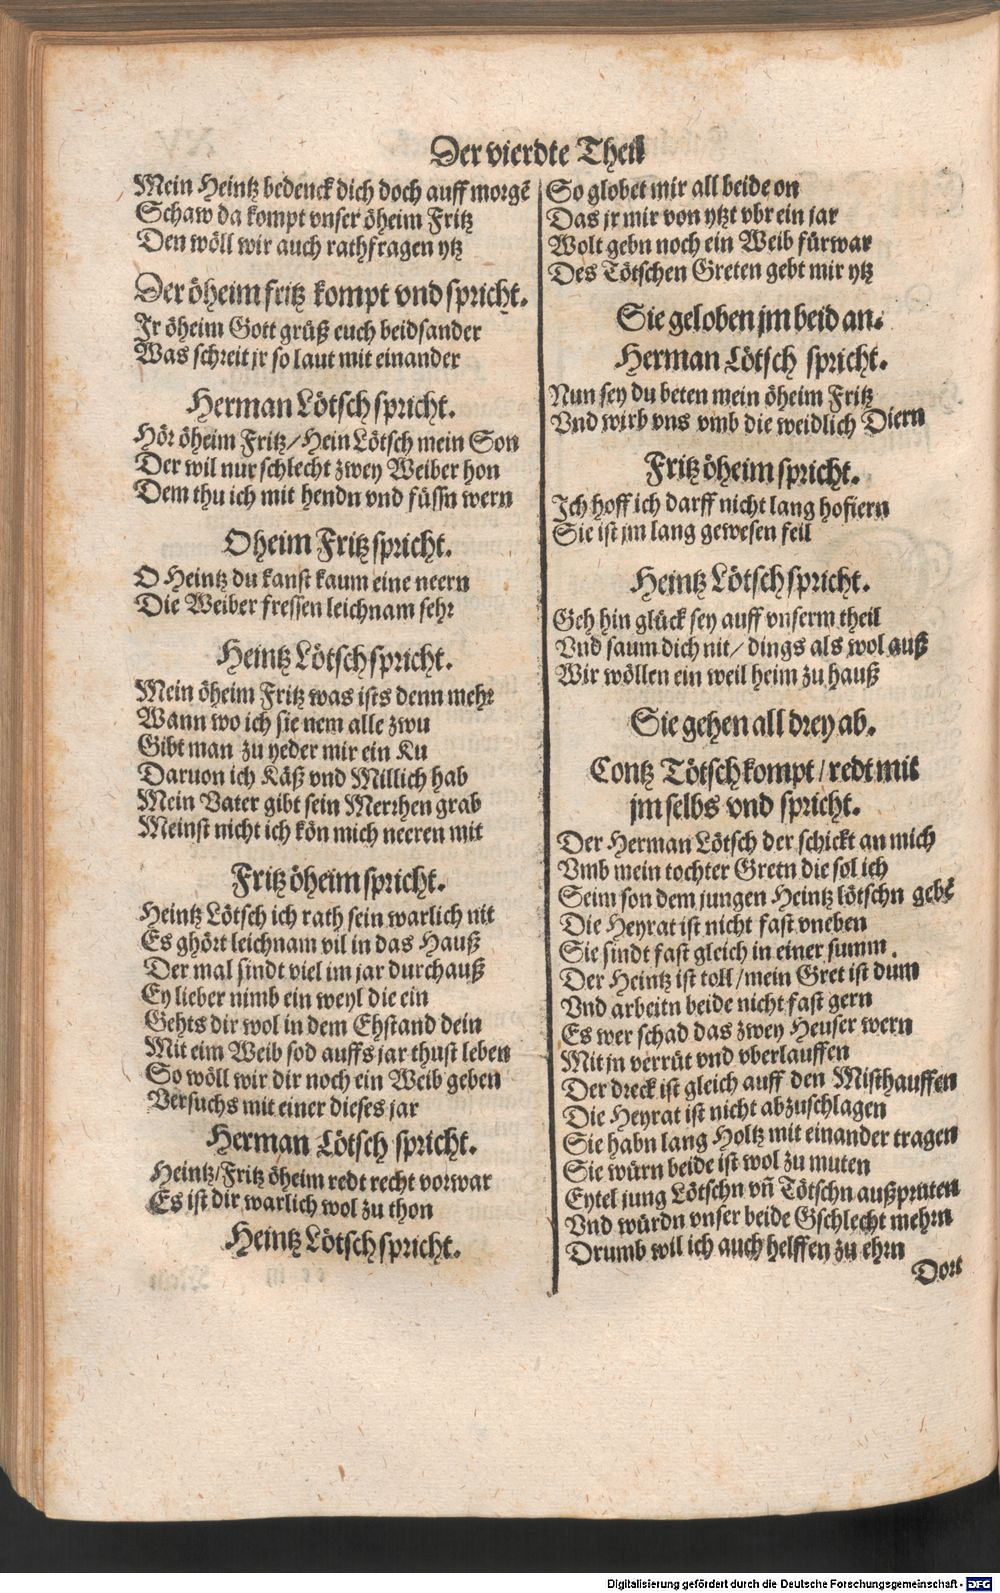 Der vierdte Theil
Mein Heintz bedenck dich doch auff morgẽ
Schaw da kompt vnser öheim Fritz
Den wöll wir auch rathfragen ytz
Der öheim fritz kompt vnd spricht.
Jr öheim Gott grüß euch beidsander
Was schreit jr so laut mit einander
Herman Lötsch spricht.
Hör öheim Fritz/Hein Lötsch mein Son
Der wil nur schlecht zwey Weiber hon
Dem thu ich mit hendn vnd füssn wern
Oheim Fritz spricht.
O Heintz du kanst kaum eine neern
Die Weiber fressen leichnam sehr
Heintz Lötsch spricht.
Mein öheim Fritz was ists denn mehr
Wann wo ich sie nem alle zwu
Gibt man zu yeder mir ein Ku
Daruon ich Käß vnd Millich hab
Mein Vater gibt sein Merrhen grab
Meinst nicht ich kön mich neeren mit
Fritz öheim spricht.
Heintz Lötsch ich rath sein warlich nit
Es ghört leichnam vil in das Hauß
Der mal sindt viel im jar durchauß
Ey lieber nimb ein weyl die ein
Gehts dir wol in dem Ehstand dein
Mit eim Weib sod auffs jar thust leben
So wöll wir dir noch ein Weib geben
Versuchs mit einer dieses jar
Herman Lötsch spricht.
Heintz/Fritz öheim redt recht vorwar
Es ist dir warlich wol zu thon
Heintz Lötsch spricht.
So globet mir all beide on
Das jr mir von ytzt vbr ein jar
Wolt gebn noch ein Weib fürwar
Des Tötschen Greten gebt mir ytz
Sie geloben jm beid an.
Herman Lötsch spricht.
Nun sey du beten mein öheim Fritz
Vnd wirb vns vmb die weidlich Diern
Fritz öheim spricht.
Ich hoff ich darff nicht lang hofiern
Sie ist jm lang gewesen feil
Heintz Lötsch spricht.
Geh hin glück sey auff vnserm theil
Vnd saum dich nit/ dings als wol auß
Wir wöllen ein weil heim zu hauß
Sie gehen all drey ab.
Contz Tötsch kompt/redt mit
jm selbs vnd spricht.
Der Herman Lötsch der schickt an mich
Vmb mein tochter Gretn die sol ich
Seim son dem jungen Heintz lötschn gebẽ
Die Heyrat ist nicht fast vneben
Sie sindt fast gleich in einer summ.
Der Heintz ist toll/mein Gret ist dum
Vnd arbeitn beide nicht fast gern
Es wer schad das zwey Heuser wern
Mit jn verrüt vnd vberlauffen
Der dreck ist gleich auff den Misthauffen
Die Heyrat ist nicht abzuschlagen
Sie habn lang Holtz mit einander tragen
Sie würn beide ist wol zu muten
Eytel jung Lötschn vñ Tötschn außpruten
Vnd würdn vnser beide Gschlecht mehrn
Drumb wil ich auch helffen zu ehrn
Dort
Digitalisierung gefördert durch die Deutsche Forschungsgemeinschaft - DFG